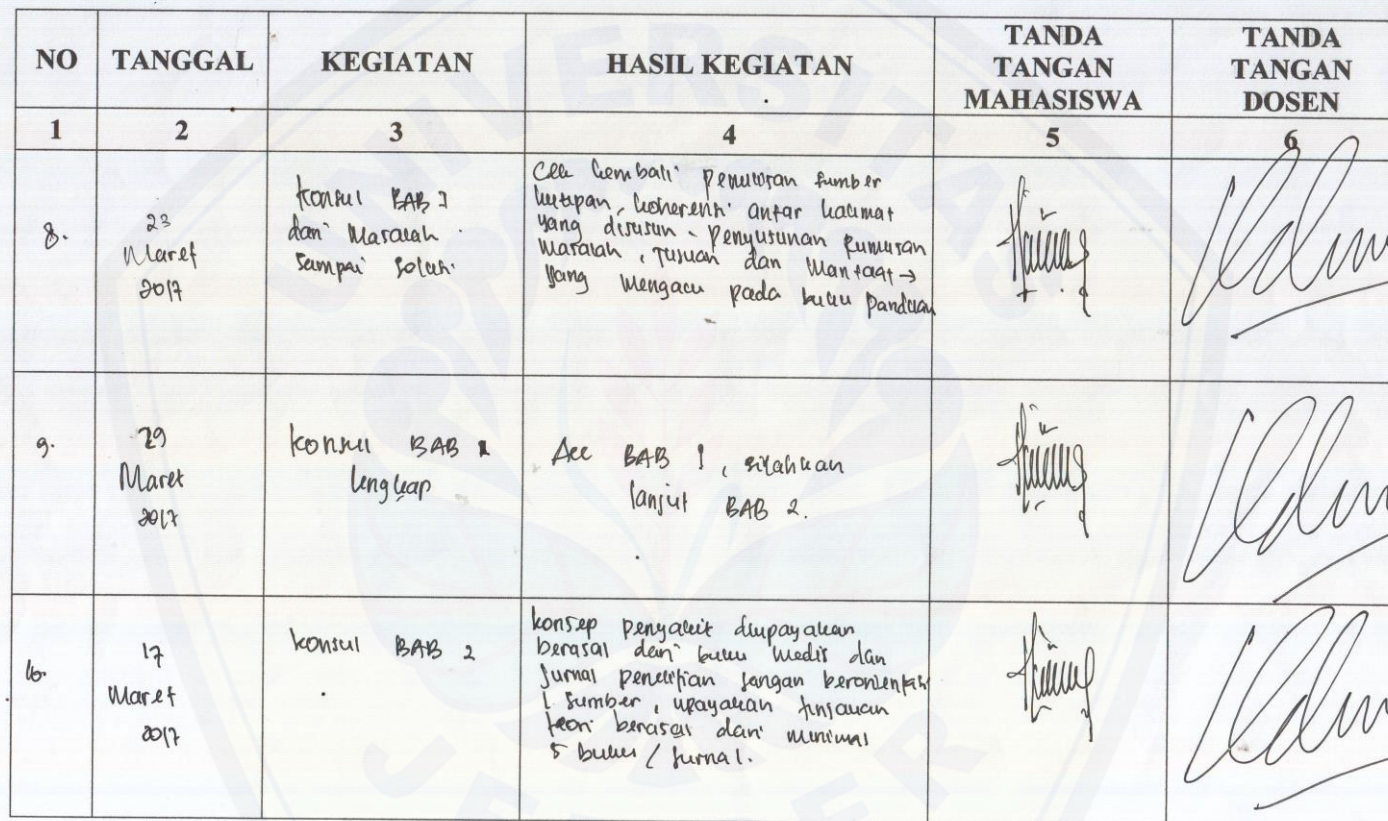 NO TANGGAL KEGIATAN HASIL KEGIATAN TANDA TANGAN MAHASISWA TANDA TANGAN DOSEN
1 2 3 4 5 6
8.
23
Maret
2017
Konsul BAB 1
dari Masalah
sampai solusi.
Cek kembali penulisan sumber
kutipan, koherensi antar kalimat
yang disusun, penyusunan rumusan
masalah, tujuan dan manfaat →
yang mengacu pada buku panduan
9.
29
Maret
2017
Konsul BAB 1
lengkap
Acc BAB 1, silahkan
lanjut BAB 2.
10.
17
Maret
2017
konsul BAB 2
konsep penyakit diupayakan
berasal dari buku medis dan
jurnal penelitian jangan berorientasi
1 sumber, upayakan tinjauan
teori berasal dari minimal
5 buku / jurnal.
UNIVERSITAS
JEMBER